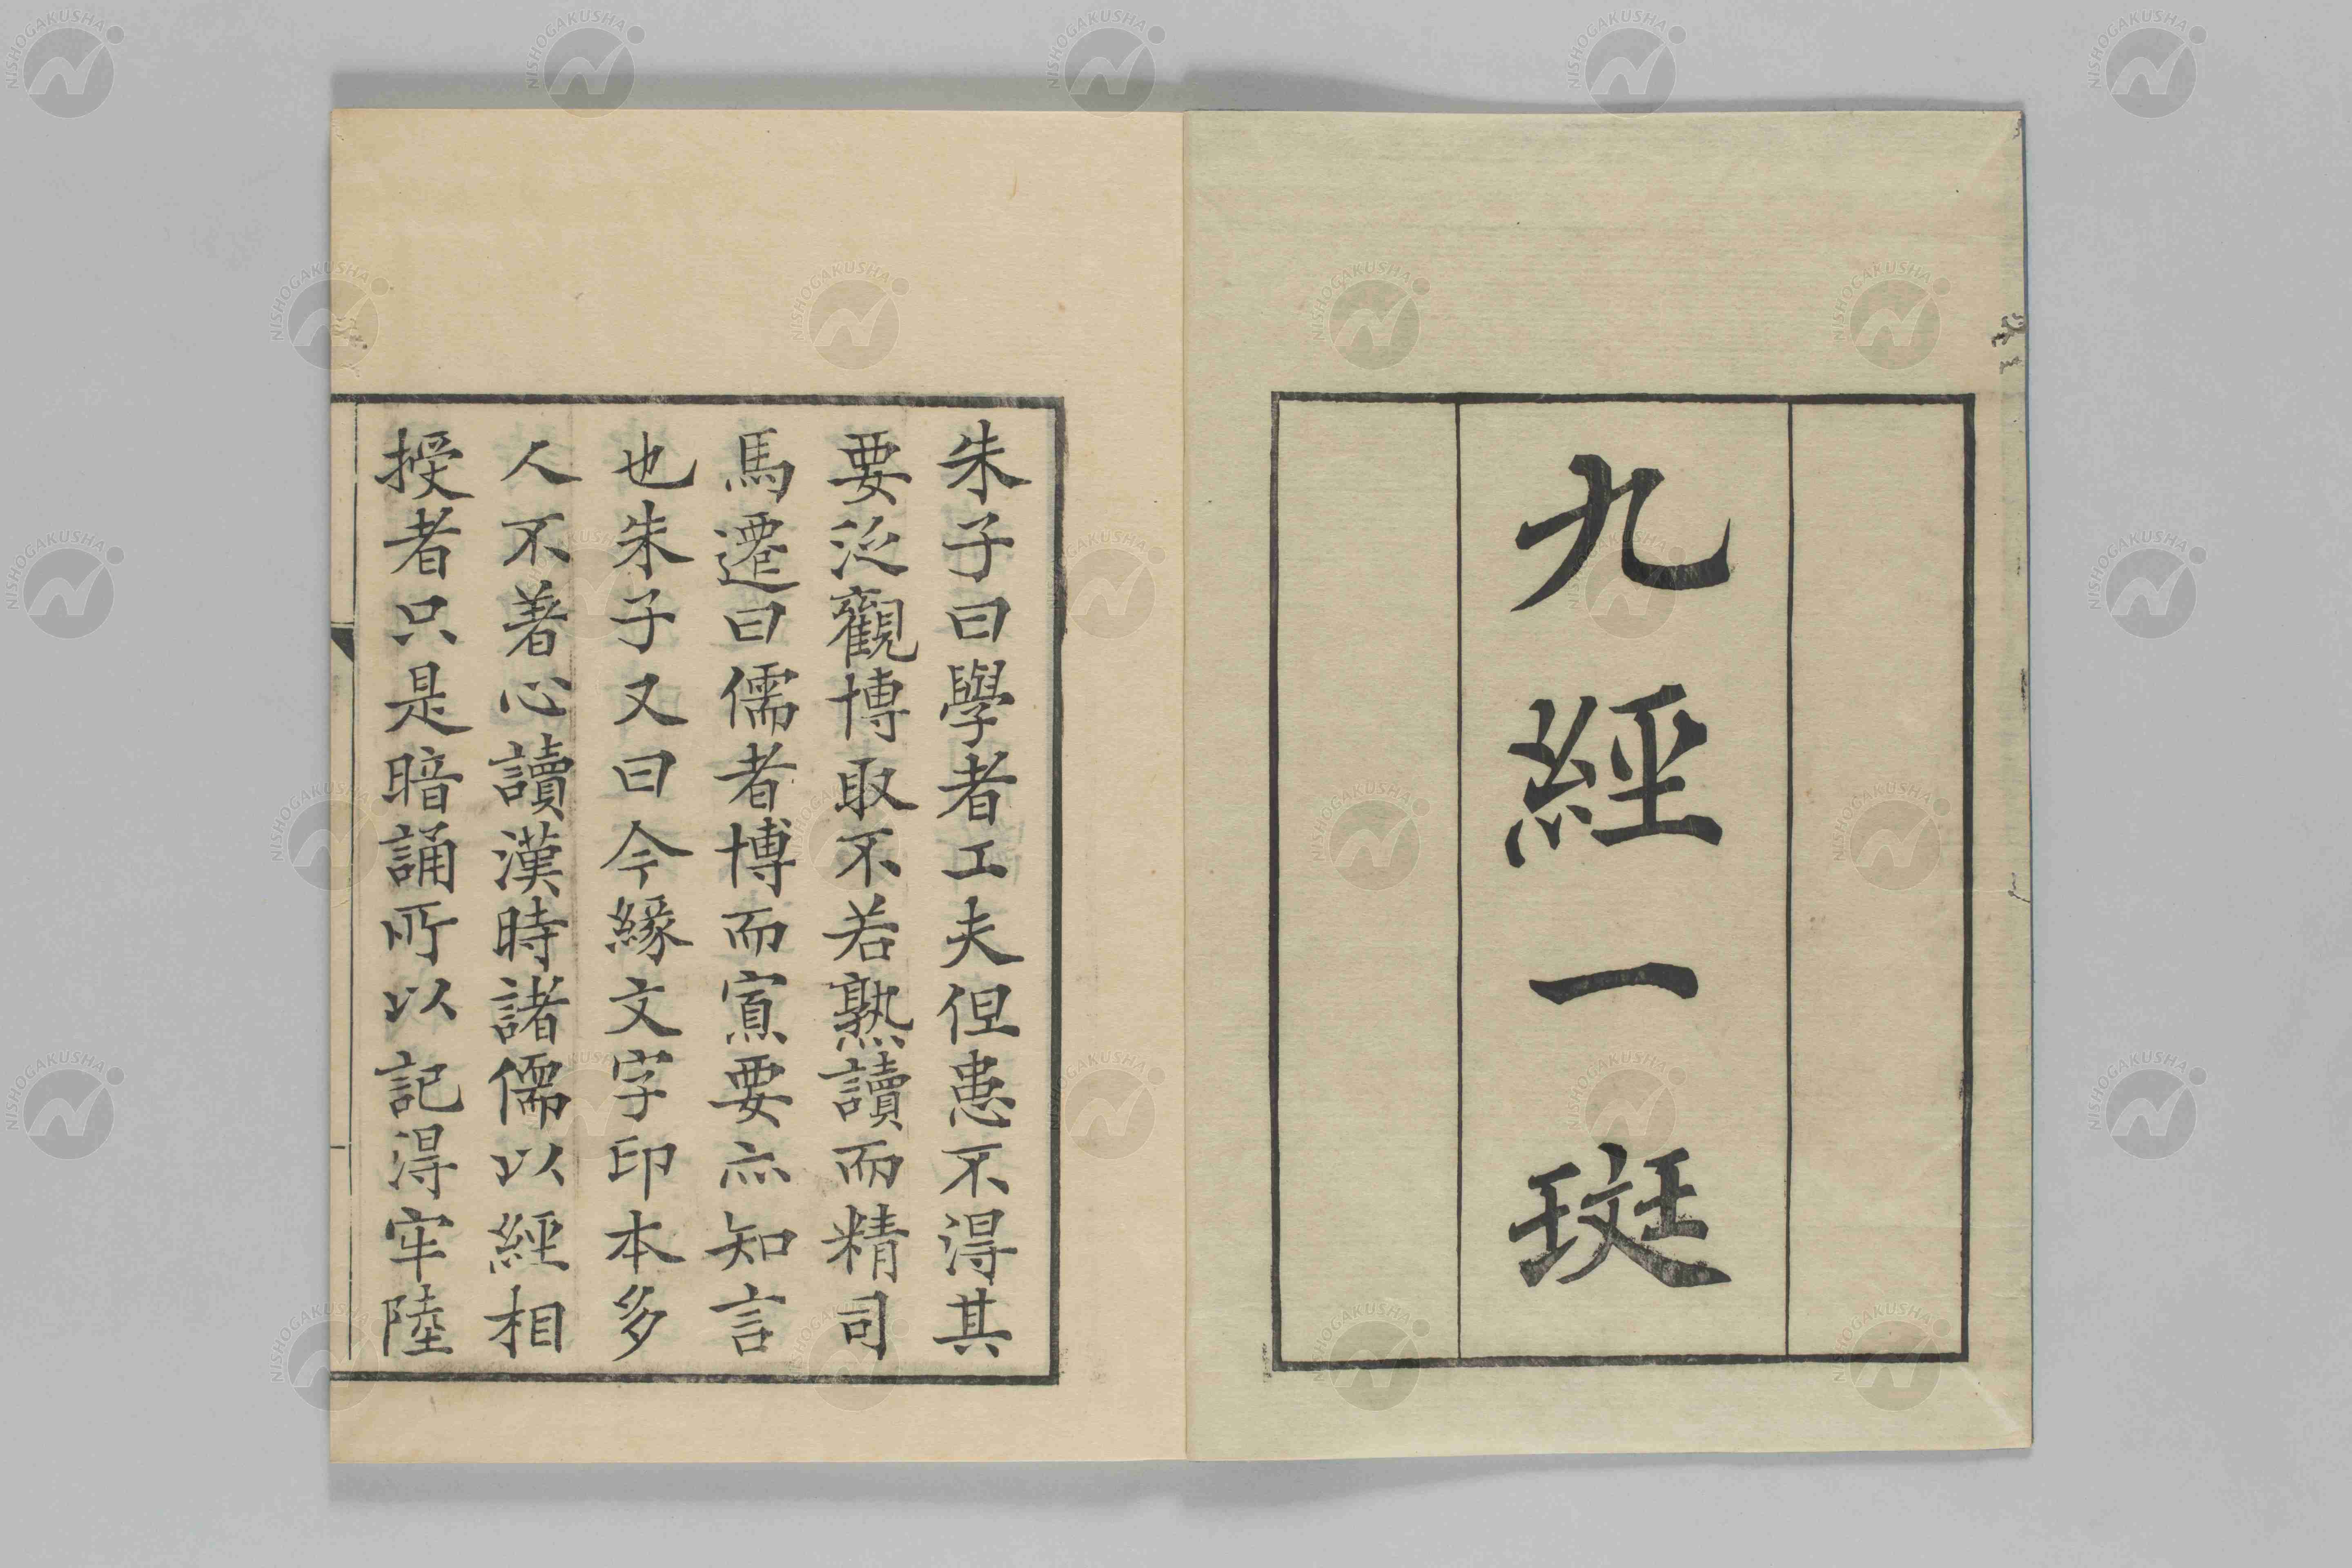 九經一斑
朱子曰學者工夫但患不得其
要泛觀博取不若熟讀而精司
馬遷曰儒者博而寡要亦知言
也朱子又曰今緣文字印本多
人不著心讀漢時諸儒以經相
授者只是暗誦所以記得牢陸
NISHOGAKUSHA